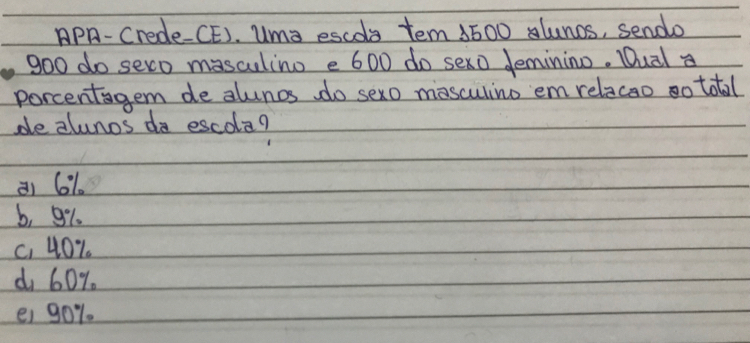 APA-Crede-CE). Uma escola tem 1500 alunos, sendo
900 do sexo masculino e 600 do sexo feminino. Qual a
porcentagem de alunos do sexo masculino em relacao ao total
de alunos da escola?
a) 6%
b) 9%
c) 40%
d) 60%
e) 90%